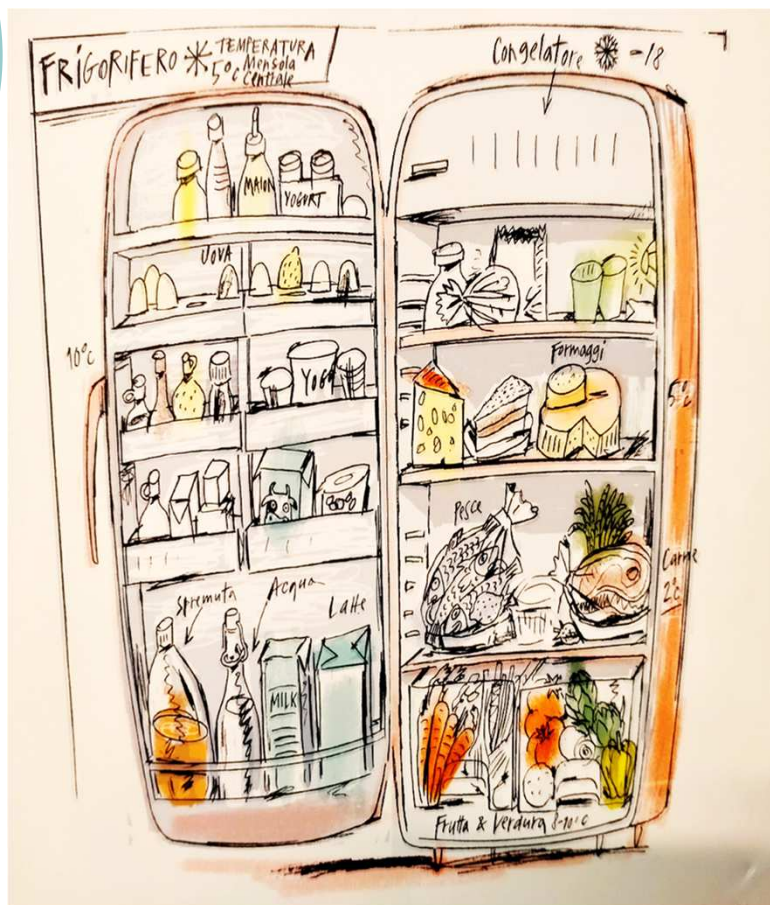 FRIGORIFERO
TEMPERATURA
5°C Mensola
Centrale
Congelatore -18
MAION
YOGURT
UOVA
10°C
YOGU
Formaggi
5°C
Pesce
Carne
2°C
Spremuta
Acqua
Latte
MILK
Frutta & Verdura 8-10°C